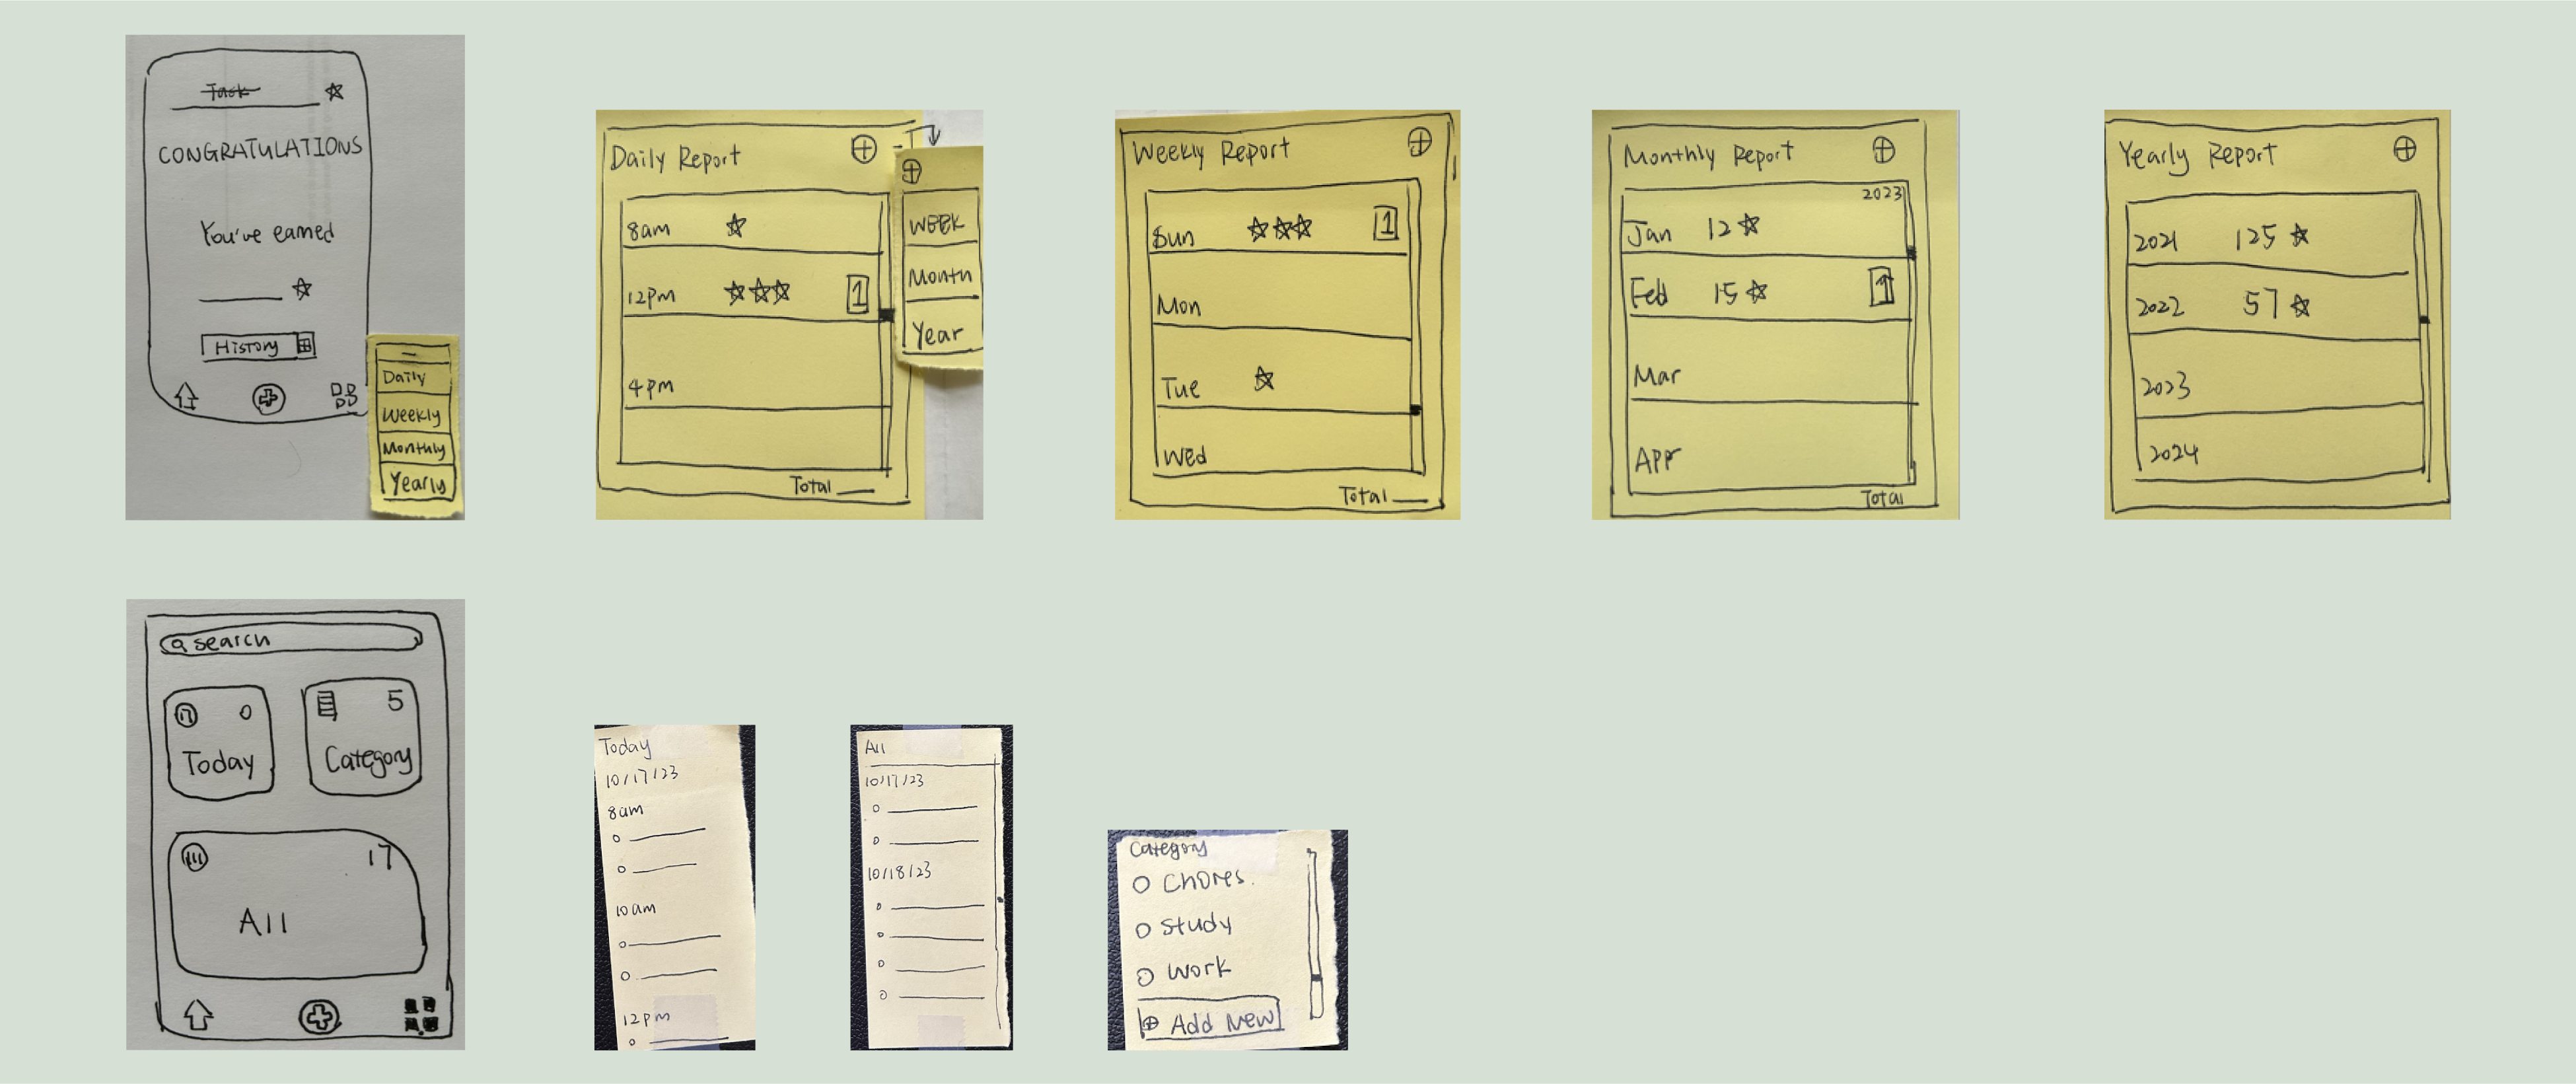 Task
CONGRATULATIONS
You've earned
History
Daily
Weekly
Monthly
Yearly
Daily Report
8am
12pm
1
4pm
Total
WEEK
Month
Year
Weekly Report
Sun
1
Mon
Tue
Wed
Total
Monthly Report
2023
Jan 12
Feb 15
1
Mar
Apr
Total
Yearly Report
2021 125
2022 57
2023
2024
search
17 0
Today
5
Category
17
All
Today
10/17/23
8am
10am
12pm
All
10/17/23
10/18/23
Category
Chores
Study
Work
Add New